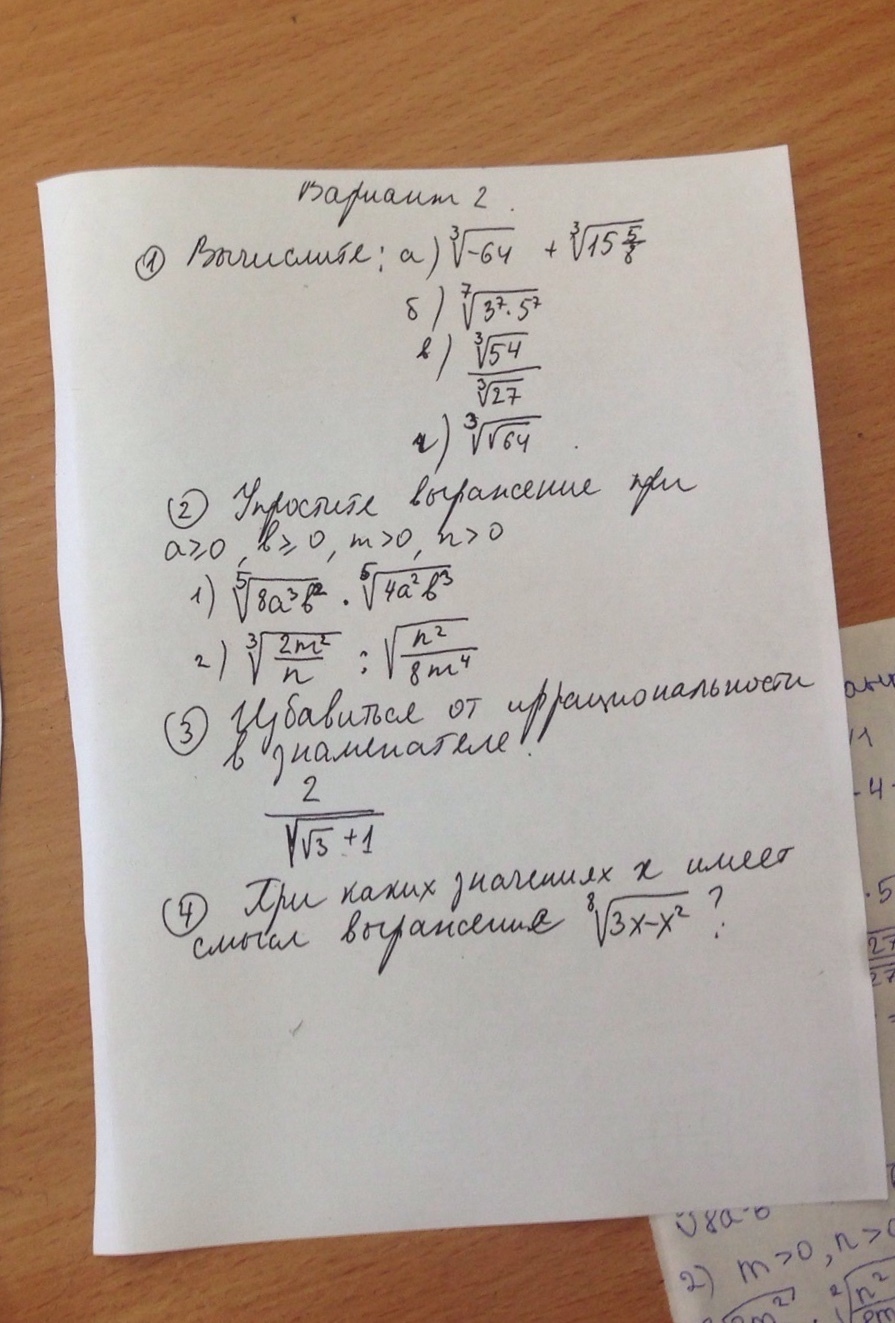 Вариант 2.
① Вычислите: а) ∛-64 + ∛15 5/8
б) ⁷√3⁷·5⁷
в) ∛54 / ∛27
г) ∛√64
② Упростите выражение при
a≥0, b≥0, m>0, n>0
1) ⁵√8a³b² · ⁵√4a²b³
2) ∛2m²/n : √n²/8m⁴
③ Избавиться от иррациональности
в знаменателе:
2 / √√3+1
④ При каких значениях x имеет
смысл выражение ⁸√3x-x² ?
-4
.5
27
27
√8a b
2) m>0, n>0